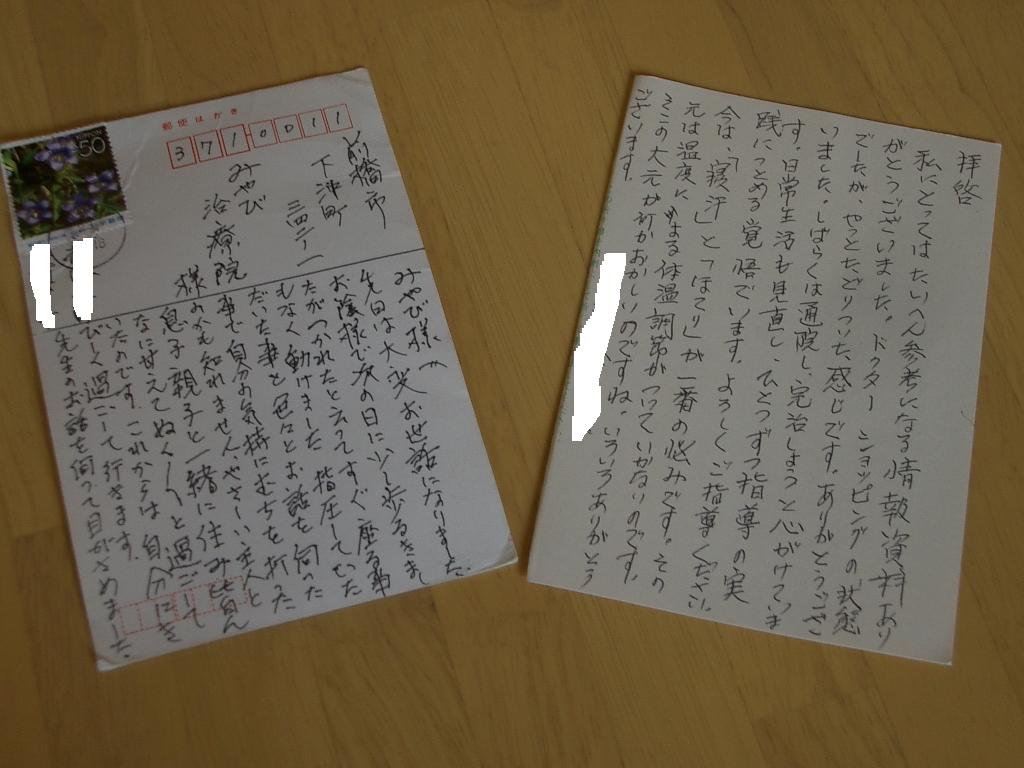 郵便はがき
50
371 0011
前橋市
下沖町
三四二ノ一
みやび
治療院
様
みやび様へ
先日は大変お世話になりました。
お陰様で次の日に少し歩るきまし
たがつかれたと云ってすぐ座る事
もなく動けました 指圧していた
だいた事と色々とお話を伺った
事で自分の気持にむちを打った
のかも知れません やさしい主人と
息子親子と一緒に住み皆ん
なに甘えてぬくぬくと過ごして
いたのです。これからは自分にき
びしく過ごして行きます。
先生のお話を伺って目がさめました
拝啓
私にとってはたいへん参考になる情報資料あり
がとうございました。ドクターショッピングの状態
でしたが、やっとたどりついた感じです。ありがとうござ
いました。しばらくは通院し、完治しようと心がけていま
す。日常生活も見直し、ひとつずつ指導の実
践につとめる覚悟でいます。よろしくご指導ください
今は、「寝汗」と「ほてり」が一番の悩みです。その
元は温度による体温調節がつつくいかないのです。
ここの大元が何かおかしいのですね。いろいろありがとう
ございます。